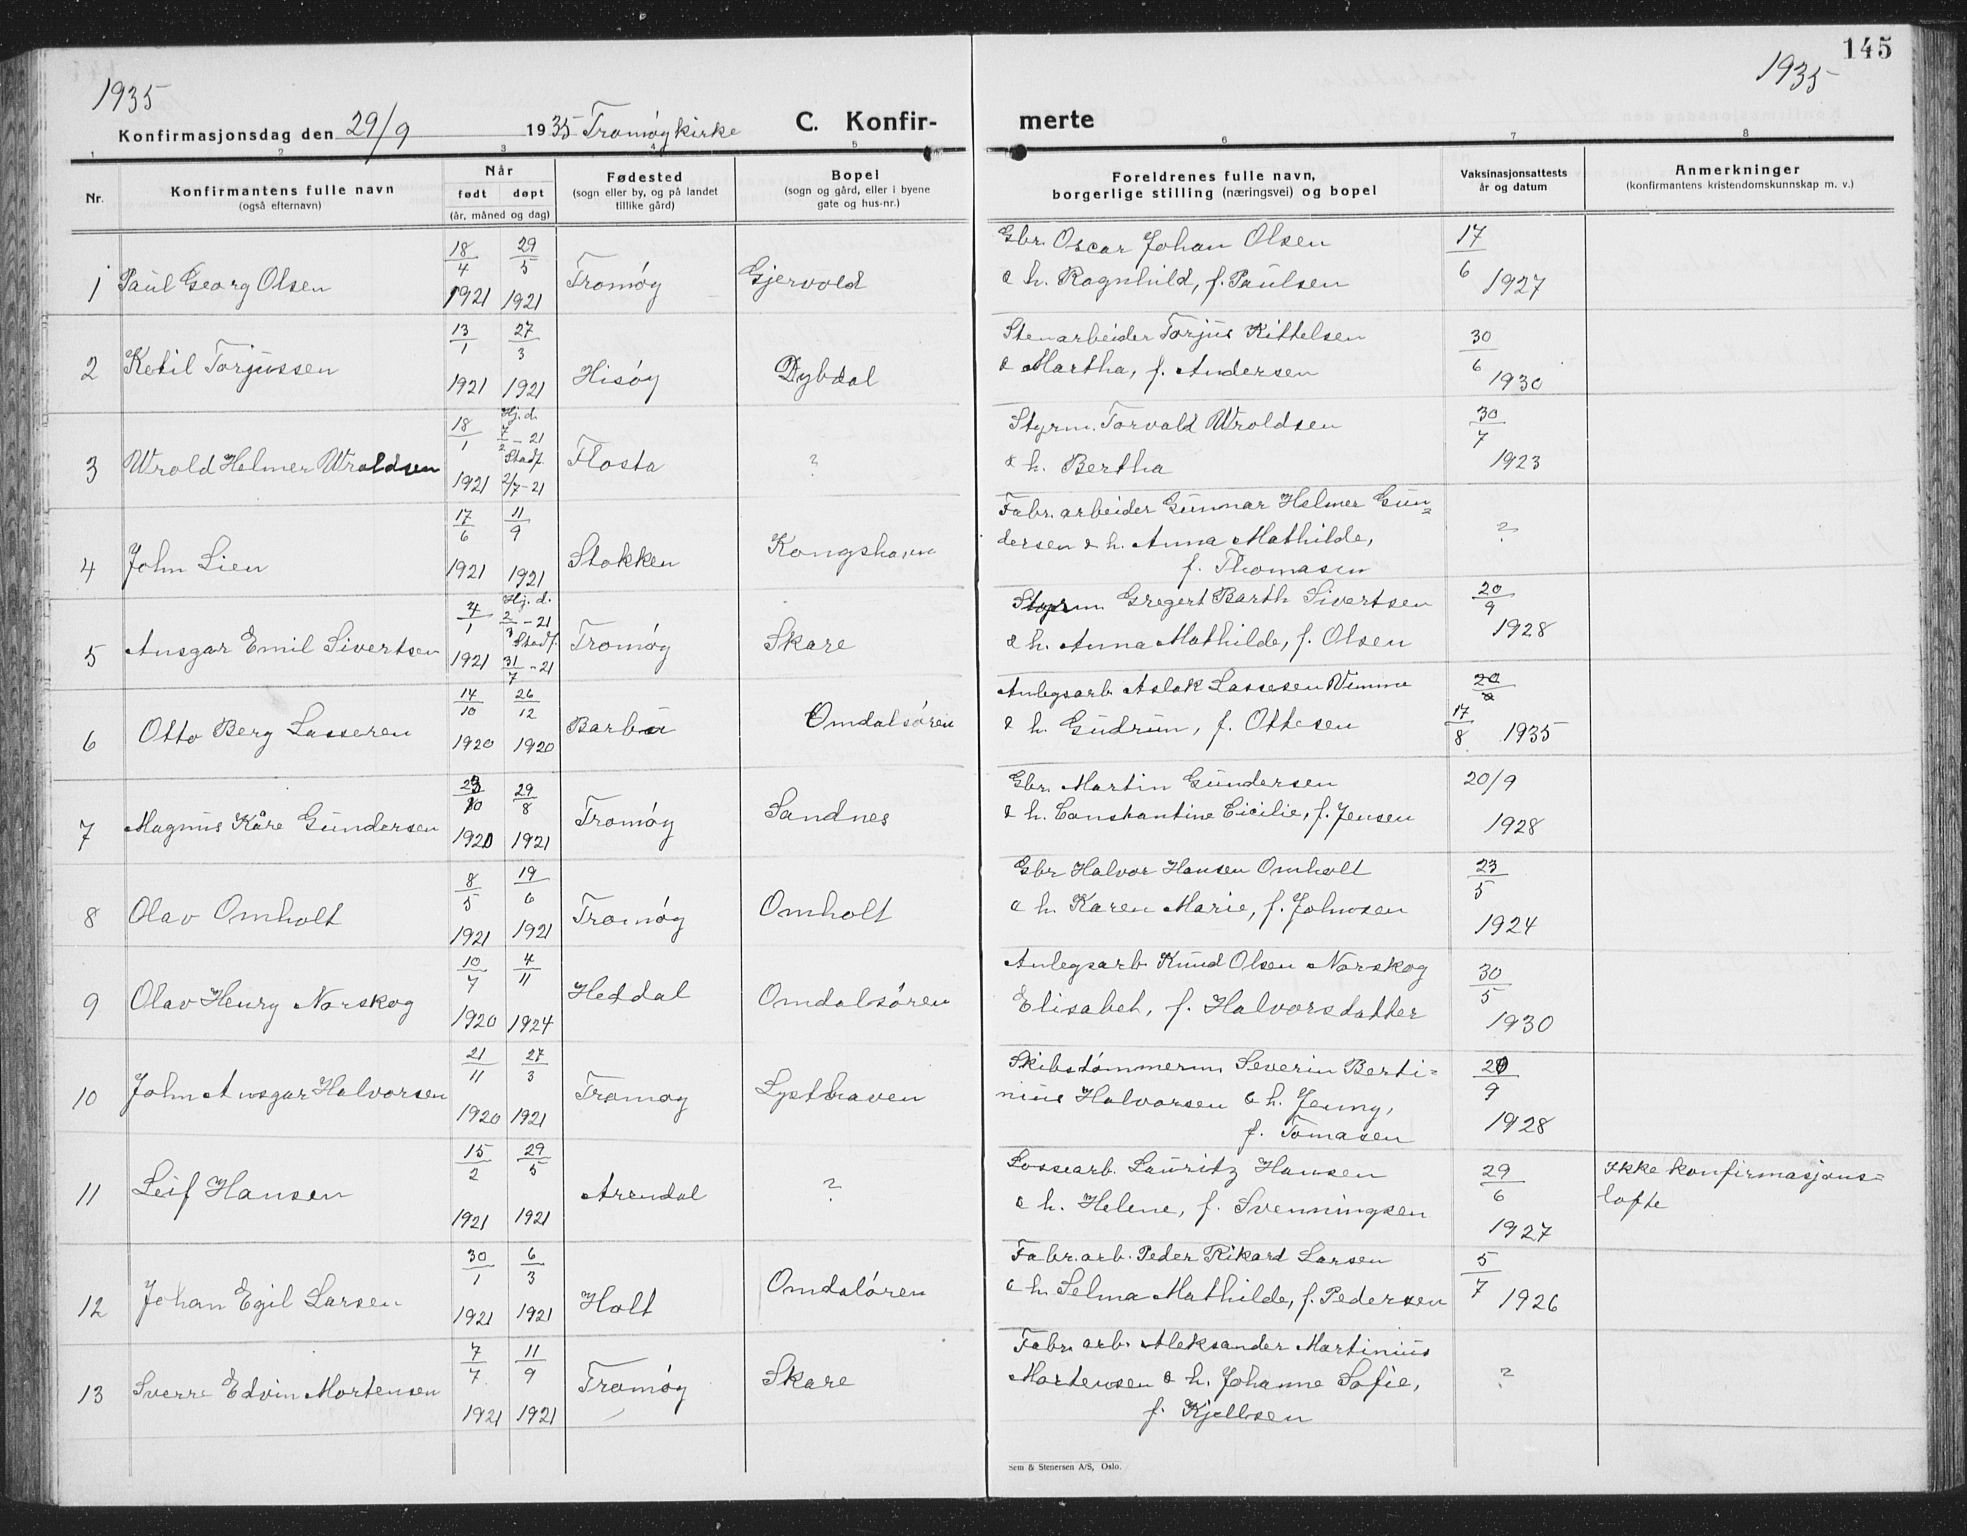 145
1935
1935
Konfirmasjonsdag den 29/9 1935 Tromøy kirke
C. Konfir- merte
1 2 3 4 5 6 7 8
Nr. Konfirmantens fulle navn (også efternavn) Når født døpt (år, måned og dag) Fødested (sogn eller by, og på landet tillike gård) Bopel (sogn og gård, eller i byene gate og hus-nr.) Foreldrenes fulle navn, borgerlige stilling (næringsvei) og bopel Vaksinasjonsattests år og datum Anmerkninger (konfirmantens kristendomskunnskap m. v.)
1 Paul Georg Olsen 18/4 1921 29/5 1921 Tromøy Gjervold Gbr. Oscar Johan Olsen
& h. Ragnhild, f. Paulsen 17/6 1927
2 Ketil Torjussen 13/1 1921 27/3 1921 Hisøy Dybdal Stenarbeider Torjus Kittelsen
& Martha, f. Andersen 30/6 1930
3 Wrold Helmer Wroldsen 18/1 1921 Hj. d. 7/2 - 21 Stadf. 2/7 - 21 Flosta ? Styrm. Torvald Wroldsen
& h. Bertha 30/7 1923
4 John Lien 17/6 1921 11/9 1921 Stokken Kongshavn Fabr. arbeider Gunnar Helmer Gun=
dersen & h. Anna Mathilde,
f. Thomasen ?
5 Ansgar Emil Sivertsen 4/1 1921 Hj. d. 2/3 - 21 Stadf. 31/7 - 21 Tromøy Skare Styrm. Gregert Barth Sivertsen
& h. Anna Mathilde, f. Olsen 20/9 1928
6 Otto Berg Lasseren 14/10 1920 26/12 1920 Barbu Omdalsøren Anlegsarb. Aslak Lassesen Vimme
& h. Gudrun, f. Ottesen 17/8 1935
7 Magnus Kåre Gundersen 23/10 1920 29/8 1921 Tromøy Sandnes Gbr. Martin Gundersen
& h. Constantine Cicilie, f. Jensen 20/9 1928
8 Olav Omholt 8/5 1921 19/6 1921 Tromøy Omholt Gbr Halvor Hansen Omholt
& h. Karen Marie, f. Johnsen 23/5 1924
9 Olav Henry Norskog 10/7 1920 4/11 1924 Heddal Omdalsøren Anlegsarb. Knud Olsen Norskog
Elisabeh, f. Halvorsdatter 30/5 1930
10 John Ansgar Halvorsen 21/11 1920 27/3 1921 Tromøy Lysthaven Skibstømmerm Severin Berti=
nius Halvorsen & h. Jenny,
f. Tomasen 20/9 1928
11 Leif Hansen 15/2 1921 29/5 1921 Arendal ? Lossearb. Lauritz Hansen
& h. Helene, f. Svenningsen 29/6 1927 Ikke konfirmasjons=
løfte
12 Johan Egil Larsen 30/1 1921 6/3 1921 Holt Omdaløren Fabr. arb. Peder Rikard Larsen
& h. Selma Mathilde, f. Pedersen 5/7 1926
13 Sverre Edvin Mortensen 7/7 1921 11/9 1921 Tromøy Skare Fabr. arb. Aleksander Martinius
Mortensen & h. Johanne Sofie,
f. Kjelbsen ?
Sem & Stenersen A/S, Oslo.